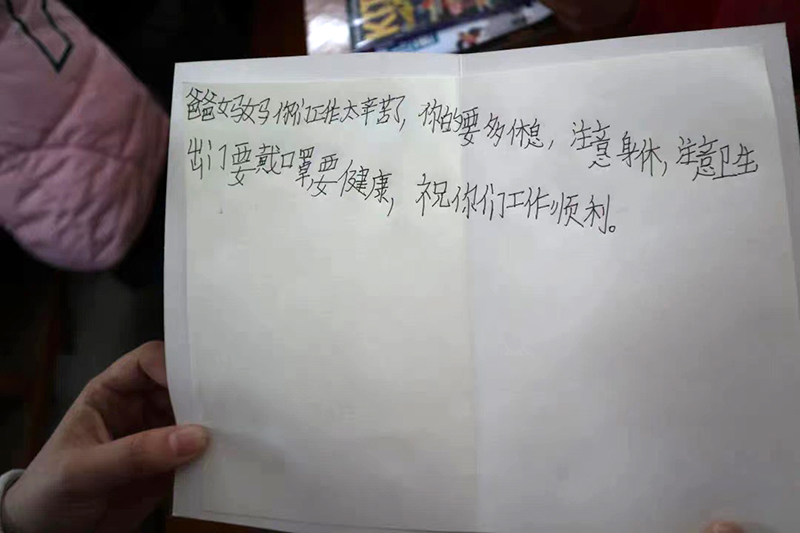 爸爸妈妈你们工作太辛苦了，你的要多休息，注意身休，注意卫生
出门要戴口罩要健康，祝你们工作顺利。